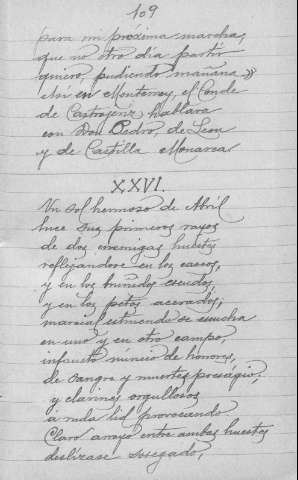 109
para mi próxima marcha,
que no otro día partir
quiero, pudiendo mañana »
Así en Monterrey, el Conde
de Castrojeriz hablara
con Don Pedro, de León
y de Castilla Monarca
XXVI.
Un sol hermoso de Abril
luce sus primeros rayos
de dos enemigas huestes
reflejándose en los cascos,
y en los bruñidos escudos,
y en los petos acerados;
marcial estruendo se escucha
en uno y en otro campo,
infausto nuncio de honores,
de sangre y muertes presagio,
y clarines orgullosos
a ruda lid provocando.
Claro arroyo entre ambas huestes
deslízase sosegado,